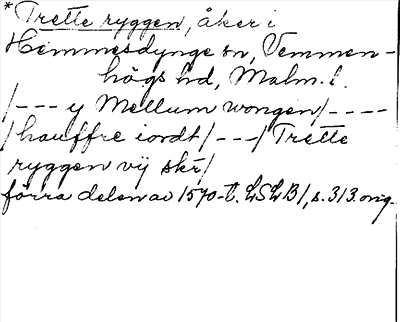 *Trette ryggen, åker i
Hemmesdynge sn, Vemmen-
högs hd, Malm. l.
/--- y Mellum wongen/----
/hauffre iordt/---/Trette
ryggen vij skr/
förra delen av 1570-t. LSLB/, s. 313. orig.